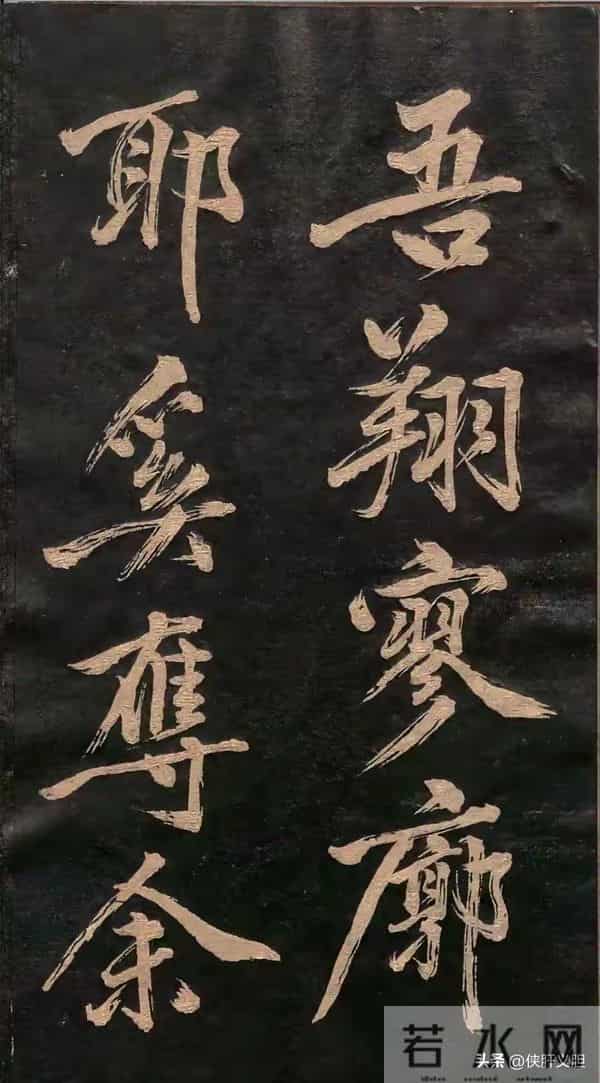 吾翔寥廓
耶奚奪余
若水网
头条 @侠肝义胆